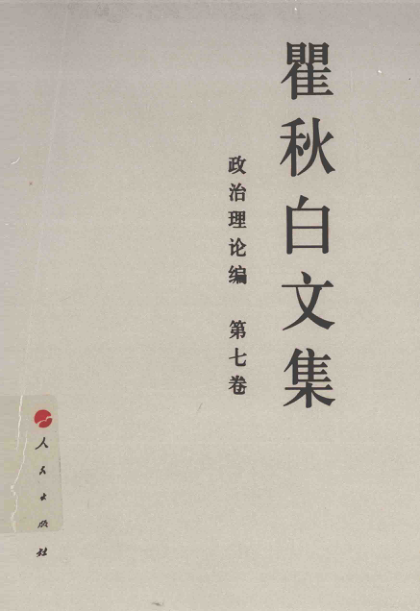 瞿秋白文集
政治理论编 第七卷
人民出版社